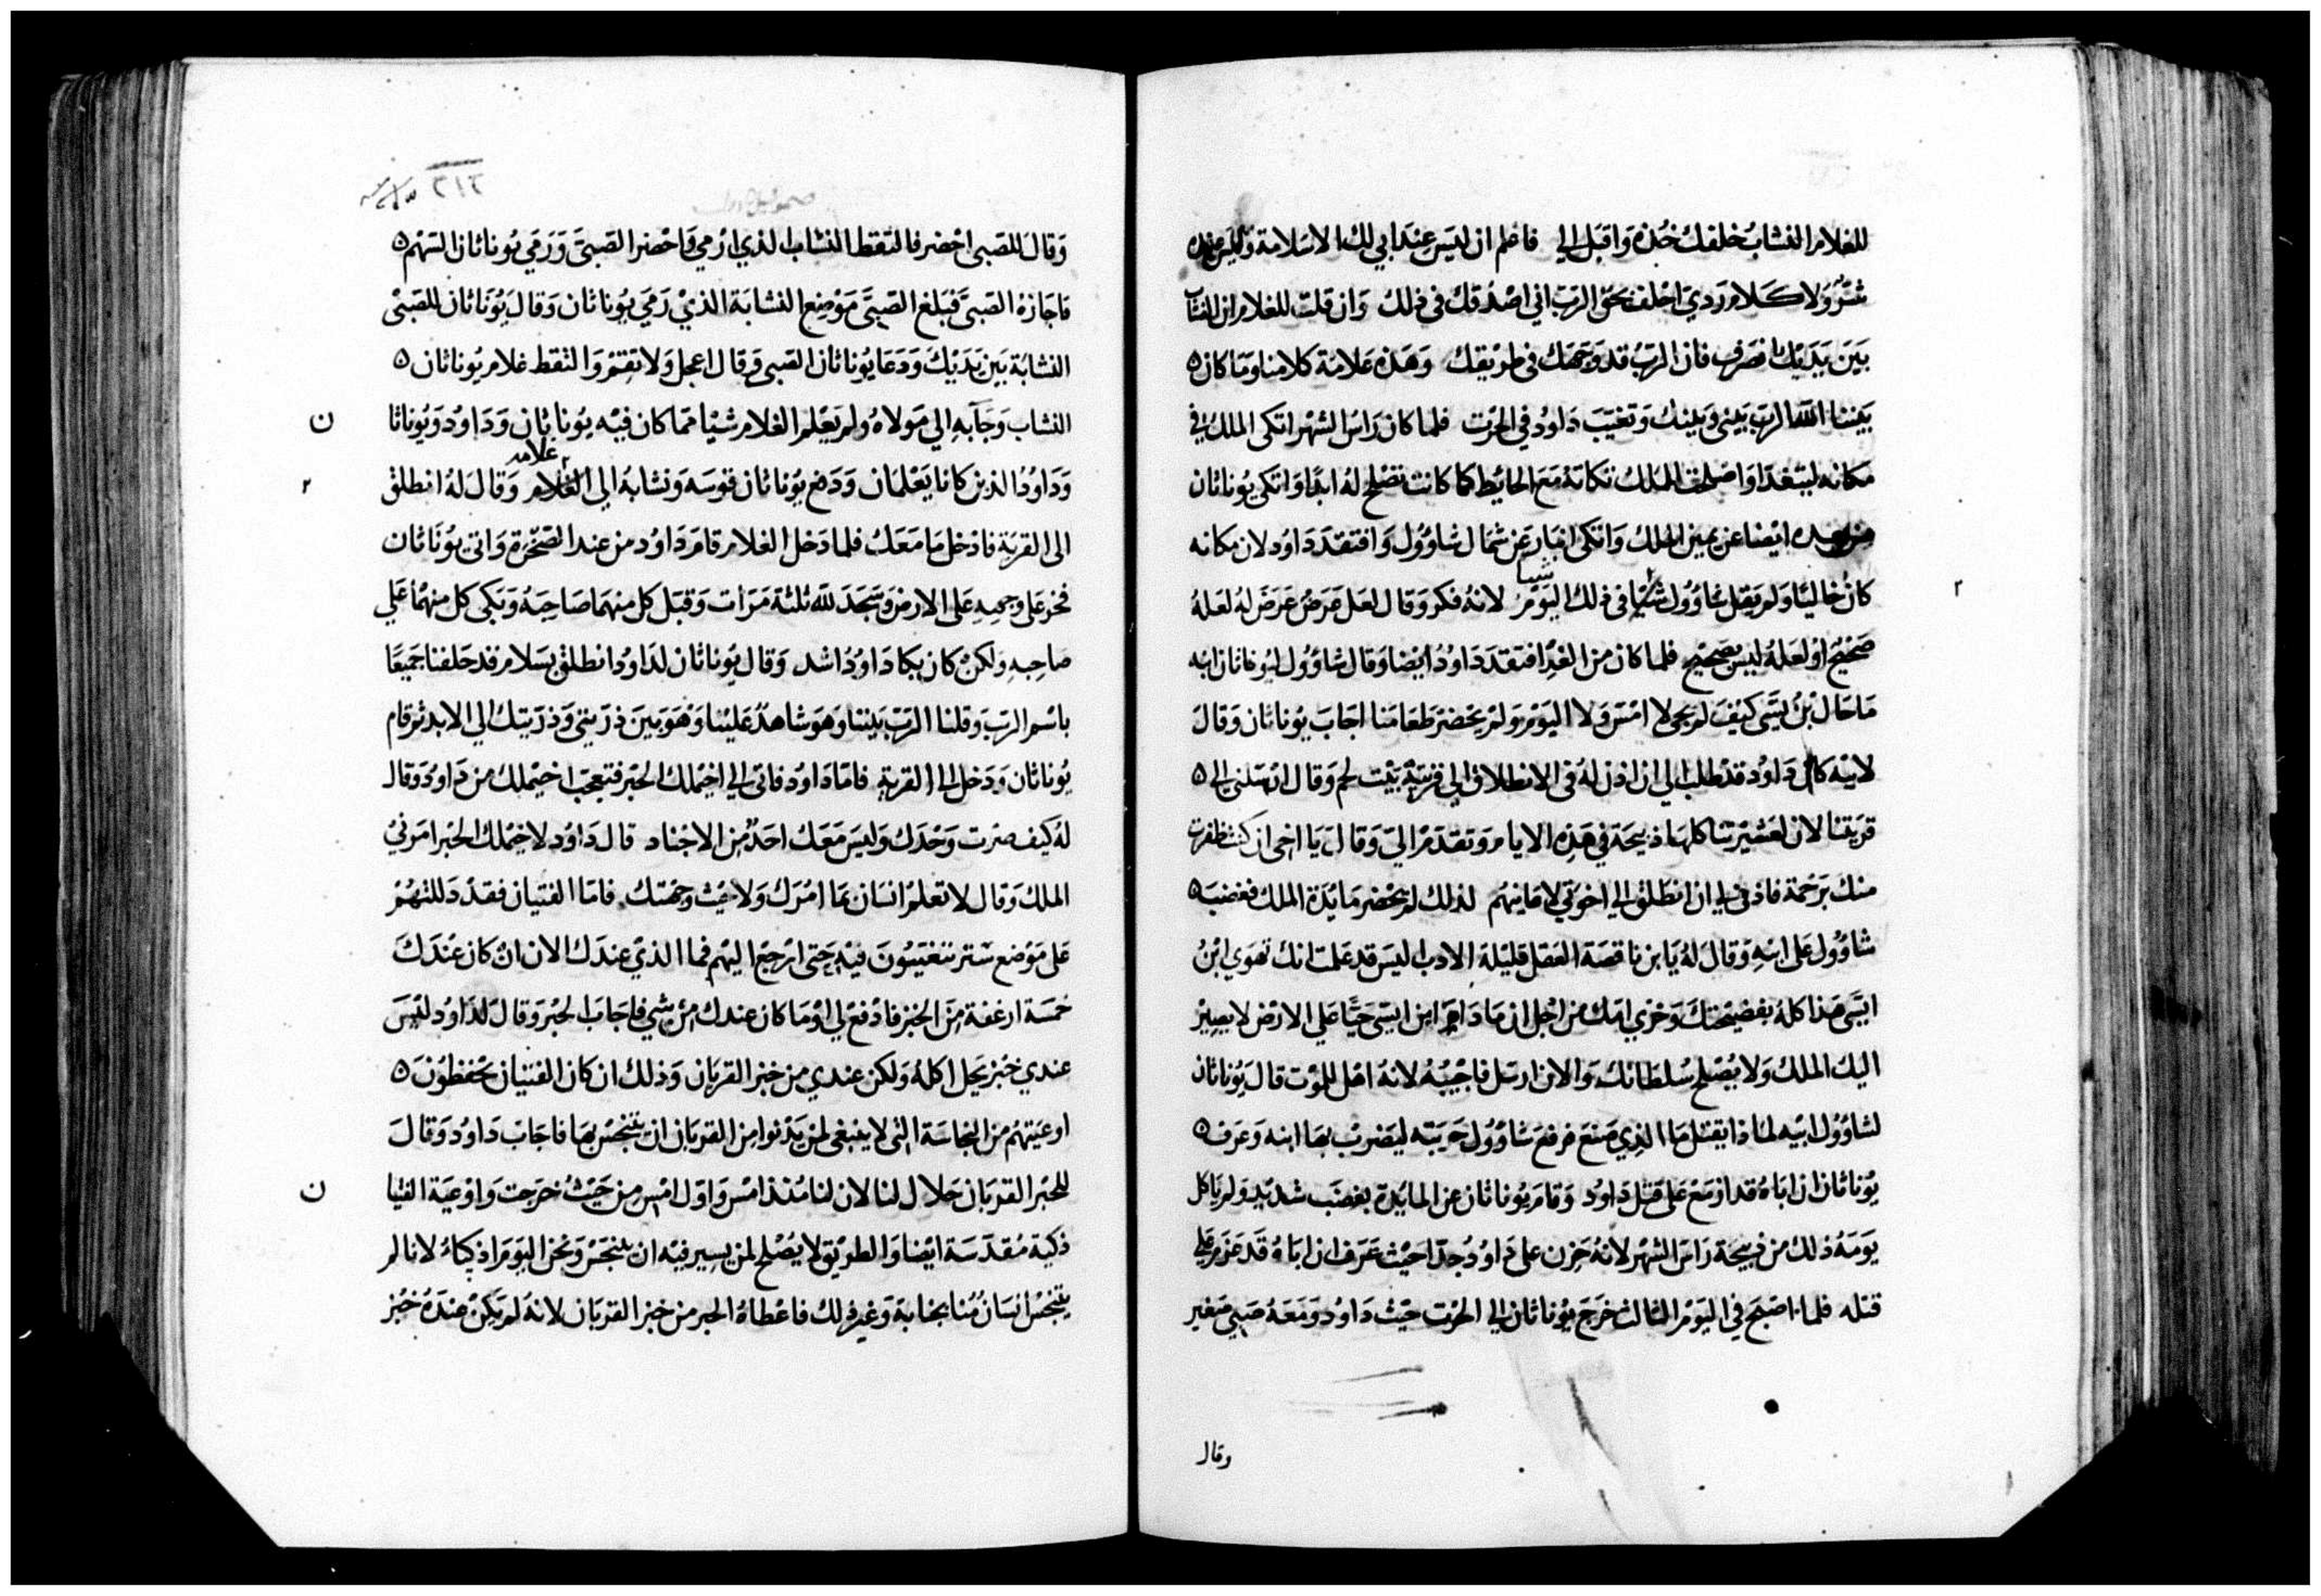 للغلام النشاب خلفك خذه واقبل الي فاعلم ان ليس عند ابي لك الا سلامة وليس عنده
شر ولا كلام ردي احلف بحق الرب اني اصدقك في ذلك وان قلت للغلام ان النشاب
بين يديك انصرف فان الرب قد وجهك في طريقك وهذه علامة كلامنا وما كان ه
بيننا الله الرب بيني وبينك وتغيب داود في الحرث فلما كان راس الشهر اتكى الملك في
مكانه ليتغدا واصلحت الملك تكاته مع الحايط كما كانت تصلح له ابدا واتكى يوناثان
من بعده ايضا عن يمين الملك واتكى ابنار عن شمال شاوول وافتقد داود لان مكانه
٢
شيا
كان خاليا ولم يقل شاوول شيا في ذلك اليوم لانه فكر وقال لعل عرض عرض له لعله
صحيح او لعله ليس بصحيح فلما كان من الغد افتقد داود ايضا وقال شاوول ليوناثان ابنه
ما حال بن يسى كيف لم يجى لا امس ولا اليوم ولم يحضر طعامنا اجاب يوناثان وقال
لابيه كان داود قد طلب الي ان اذن له في الانطلاق الي قرية بيت لحم وقال ارسلني الي ه
قريتنا لان لعشيرتنا كلها ذبيحة في هذه الايام وتقدم الي وقال يا اخي ان كنت ظفرت
منك برحمة فاذن لي ان انطلق الي اخوتي لاعاينهم لذلك لم يحضر مايدة الملك فغضب ه
شاوول على ابنه وقال له يا ابن ناقصة العقل قليلة الادب ليس قد علمت انك تهوي ابن
ايسى هذا كله بفضيحتك وخزي امك من اجل ان ما دام ابن ايسى حيا على الارض لا يصير
اليك الملك ولا يصلح سلطانك والان ارسل فاجيبه لانه اهل للموت قال يوناثان
لشاوول ابيه لماذا يقتل ما الذي صنع فرفع شاوول حربته ليضرب بها ابنه وعرف ه
يوناثان ان اباه قد ازمع على قتل داود وقام يوناثان عن المايدة بغضب شديد ولم ياكل
يومه ذلك من ذبيحة راس الشهر لانه حزن على داود جدا حيث عرف ان اباه قد عزم على
قتله فلما اصبح في اليوم الثالث خرج يوناثان الي الحرث حيث داود ومعه صبي صغير
وقال
٢١٢
صموييل اول
وقال للصبى احضر فالتقط النشاب الذي ارمي فاحضر الصبى ورمي يوناثان السهم ه
فاجازه الصبى فبلغ الصبى موضع النشابة الذي رمي يوناثان وقال يوناثان للصبى
النشابة بين يديك ودعا يوناثان الصبى وقال اعجل ولا تقم والتقط غلام يوناثان ه
ن
النشاب وجا به الي مولاه ولم يعلم الغلام شيا مما كان فيه يوناثان وداود ويوناثا
٢
غلامه
وداود الذين كانا يعلمان ودفع يوناثان قوسه ونشابه الى الغلام وقال له انطلق
الى القرية فادخل ما معك فلما دخل الغلام قام داود من عند الصخرة واتى يوناثان
فخر على وجهه على الارض وسجد لله ثلثة مرات وقبل كل منهما صاحبه وبكى كل منهما علي
صاحبه ولكن كان بكا داود اشد وقال يوناثان لداود انطلق بسلام قد حلفنا جميعا
باسم الرب وقلنا الرب بيننا وهو شاهد علينا وهو بين ذريتي وذريتك الي الابد ثم قام
يوناثان ودخل الي القرية فاما داود فاتى الي اخيملك الحبر فتعجب اخيملك من داود وقال
له كيف صرت وحدك وليس معك احد من الاجناد قال داود لاخيملك الحبر امرني
الملك وقال لا تعلم انسان بما امرك ولا حيث وجهتك فاما الفتيان فقد دللتهم
على موضع ستر يتغيبون فيه حتى ارجع اليهم فما الذي عندك الان ان كان عندك
خمسة ارغفة من الخبز فادفع لي او ما كان عندك من شي فاجاب الحبر وقال لداود ليس
عندي خبز يحل اكله ولكن عندي من خبز القربان وذلك ان كان الفتيان يحفظون ه
اوعيتهم من النجاسة التي لا ينبغي لمن يدنوا من القربان ان يتنجس بها فاجاب داود وقال
ن
للحبر القربان حلال لنا لان لنا منذ امس واول امس من حيث خرجت واوعية الفتيا
ذكية مقدسة ايضا والطريق لا يصلح لمن يسير فيه ان يتنجس ونحن اليوم اذكيا لانا لم
يتنجس انسان منا بجنابة وغير ذلك فاعطاه الحبر من خبز القربان لانه لم يكن عنده خبز